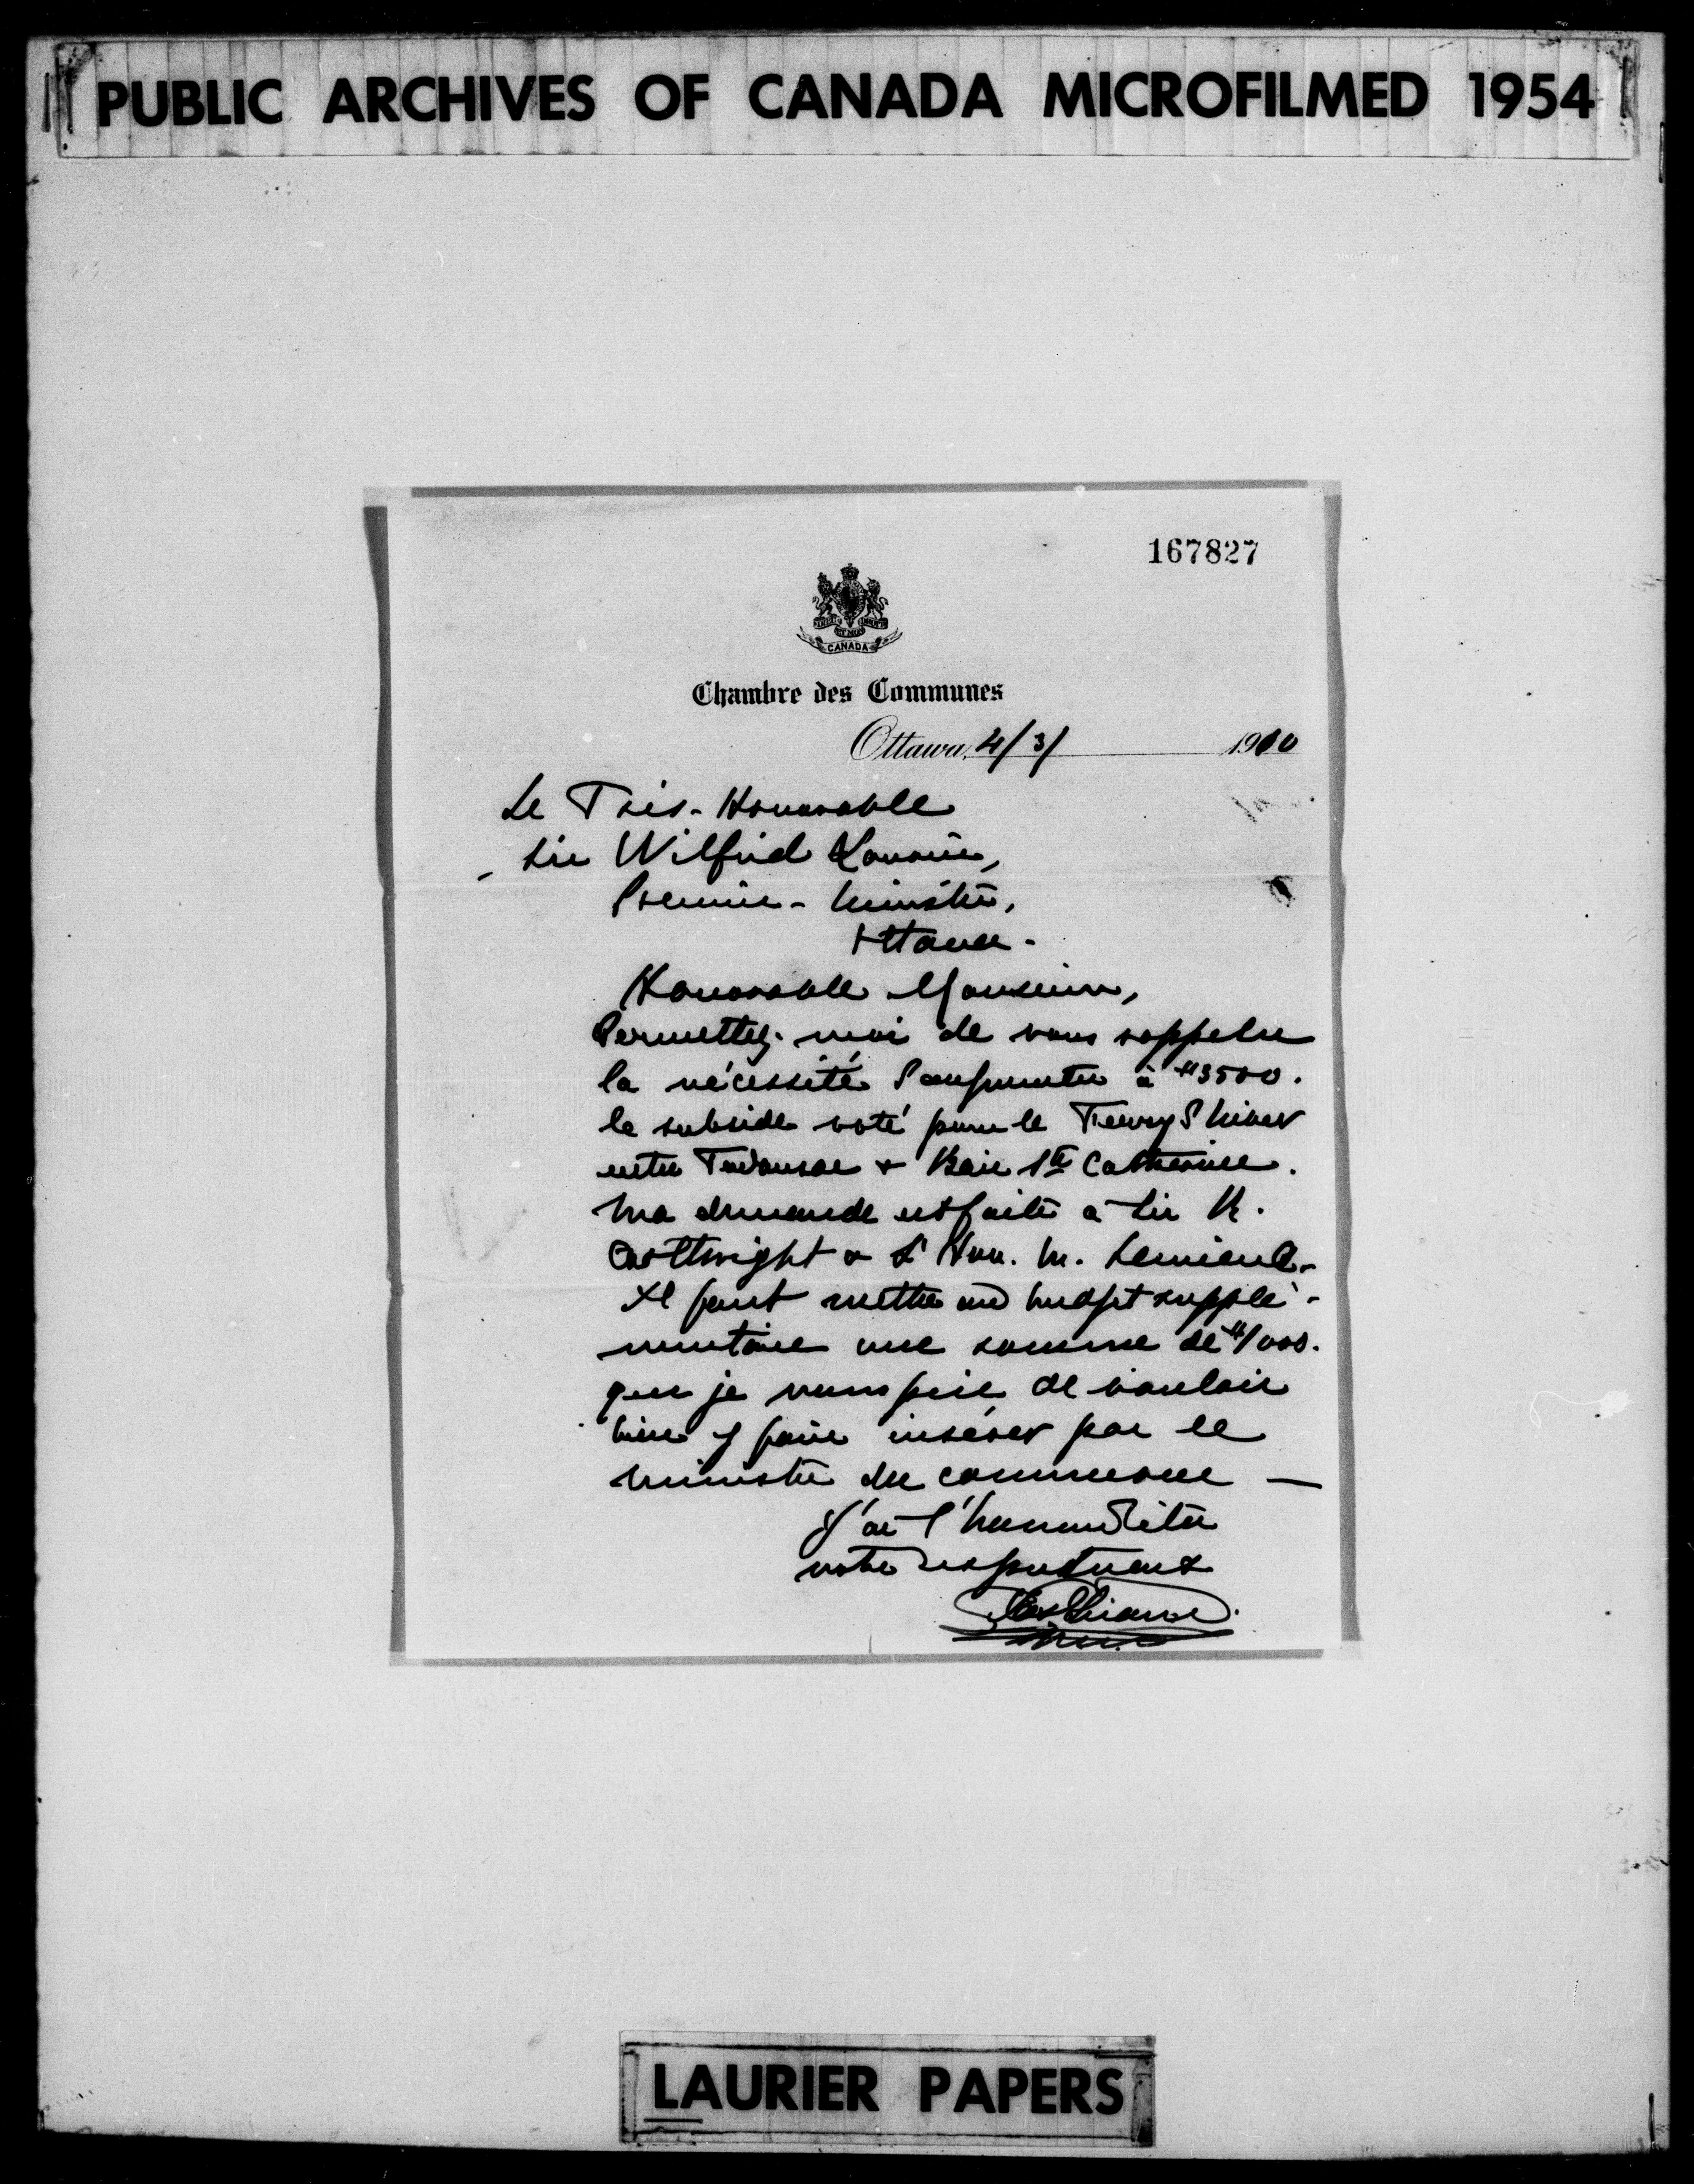 PUBLIC ARCHIVES OF CANADA MICROFILMED 1954
167827
CANADA
Chambre des Communes
Ottawa, 4/3/ 1910
Le Très-Honorable
Sir Wilfrid Laurier,
Premier-Ministre,
Ottawa.
Honorable Monsieur,
Permettez-moi de vous rappeler
la nécessité d'augmenter à $3500.
le subside voté pour le Ferry d'hiver
entre Tadousac & Baie Ste Catherine.
Ma demande est faite à Sir R.
Cartwright & L'Hon. M. Lemieux.
Il faut mettre au budget supplé-
mentaire une somme de $1000.
que je vous prie de vouloir
bien y faire insérer par le
ministre du commerce —
J'ai l'honneur d'être
votre respectueux
LAURIER PAPERS